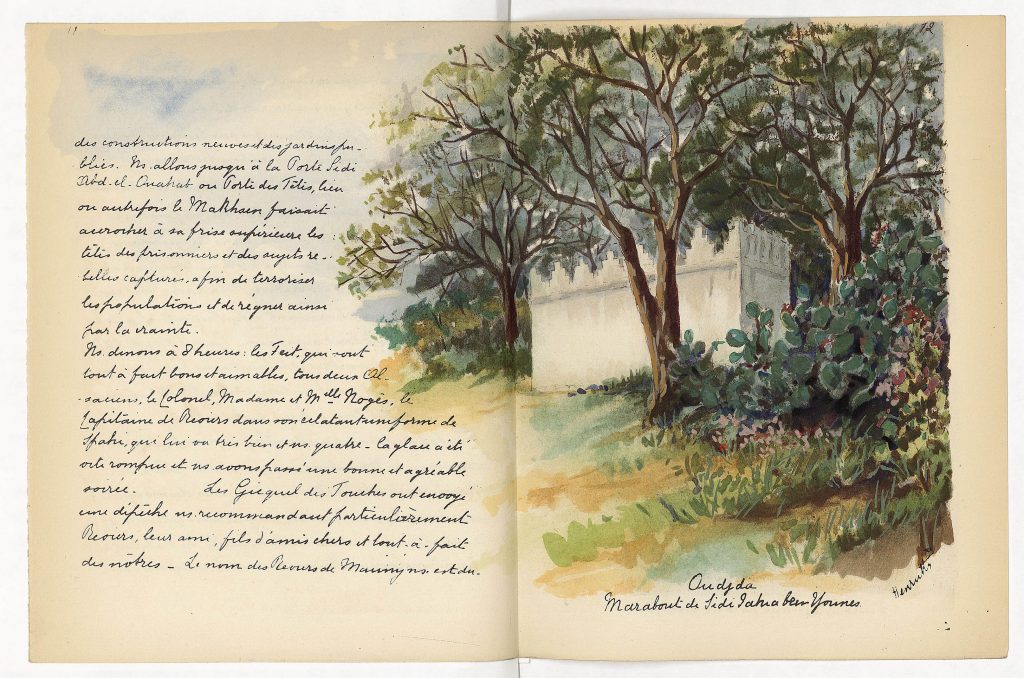 11
des constructions neuves et des jardins pu-
blics. Ns. allons jusqu'à la Porte Sidi
Abd-el-Ouahab ou Porte des Têtes, lieu
ou autrefois le Makhzen faisait
accrocher à sa frise supérieure les
têtes des prisonniers et des sujets re-
belles capturés, afin de terroriser
les populations et de régner ainsi
par la crainte.
Ns. dinons à 8 heures: les Feit, qui sont
tout à fait bons et aimables, tous deux Al-
saciens, le Colonel, Madame et Melle Nogès, le
Capitaine de Reours dans son éclatant uniforme de
Spahi, qui lui va très bien et ns. quatre - la glace a été
vite rompue et ns avons passé une bonne et agréable
soirée. Les Gicquel des Touches ont envoyé
une dépêche ns. recommandant particulièrement
Reours, leur ami, fils d'amis chers et tout-à-fait
des nôtres - Le nom des Reours de Mauiny ns. est du-
12
Oudjda
Marabout de Sidi Yahia ben Younes